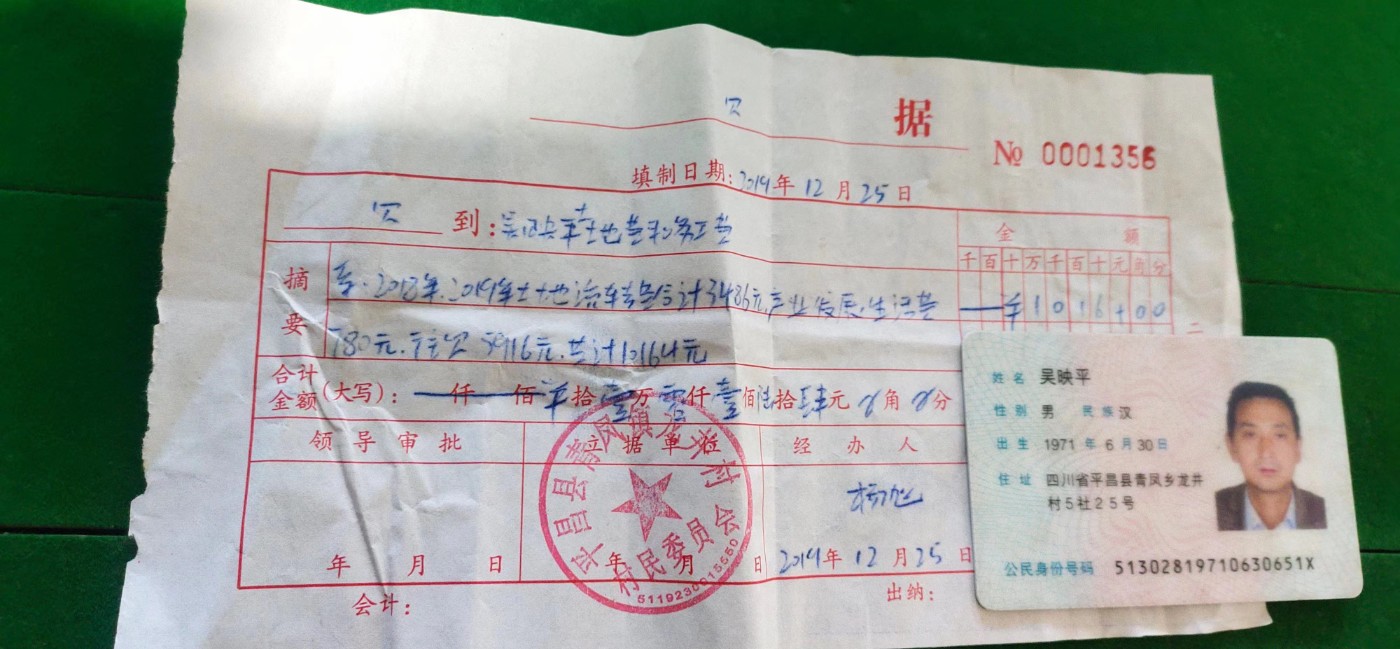 欠 据
№ 0001356
填制日期：2019年12月25日
欠 到：吴映平土地 务工
金 额
千百十万千百十元角分
摘要
2018年.2019年土地 计3486元,产业发展.生活
780元. 欠5916元.共计10164元
¥1016400
合计金额(大写)：仟 佰 拾壹万零仟壹佰陆拾肆元 角 分
领导审批
立据单位
经办人
平昌县青凤镇龙井村
村民委员会
5119230015550
年 月 日
年 月 日
2019年12月25日
会计：
出纳：
姓名 吴映平
性别 男 民族 汉
出生 1971年6月30日
住址 四川省平昌县青凤乡龙井
村5社25号
公民身份号码 51302819710630651X